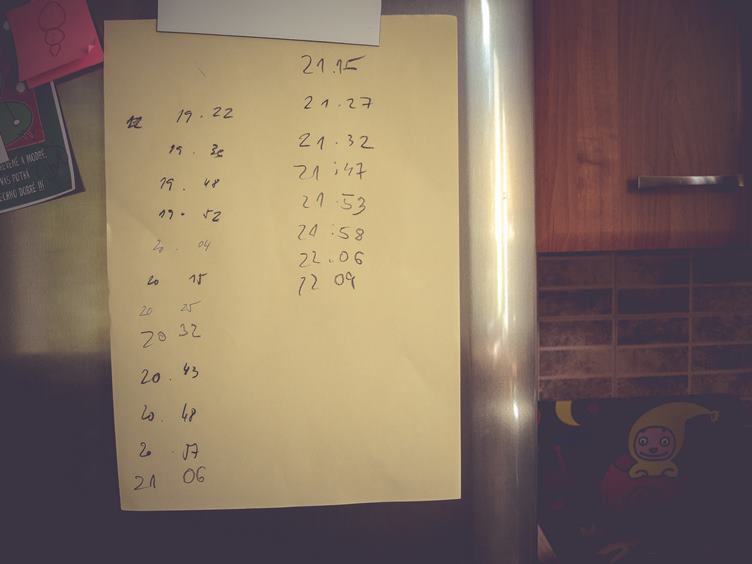 19.22
19.
19.48
19.52
20.04
20 15
20 25
20 32
20.43
20.48
20.57
21 06
21.15
21.27
21.32
21:47
21:53
21:58
22.06
22 09
A MODRÉ,
NÁS POTKÁ
DOBRÉ !!!